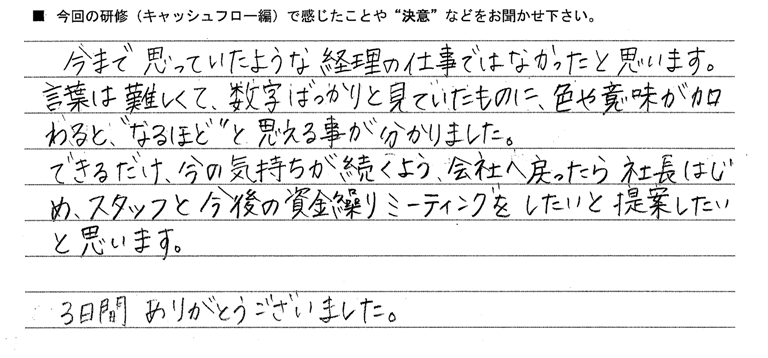 ■ 今回の研修（キャッシュフロー編）で感じたことや“決意”などをお聞かせ下さい。
今まで思っていたような経理の仕事ではなかったと思います。
言葉は難しくて、数字ばっかりと見ていたものに、色や意味が加
わると、“なるほど”と思える事が分かりました。
できるだけ、今の気持ちが続くよう、会社へ戻ったら社長はじ
め、スタッフと今後の資金繰りミーティングをしたいと提案したい
と思います。
3日間ありがとうございました。